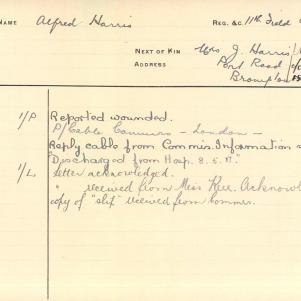 NAME Alfred Harris REG. &C. 11th Field
NEXT OF KIN Mrs J. Harris
ADDRESS Port Road
Brompton
1/P Reported wounded.
P/Cable Commrs - London -
Reply cable from Commis. Information
"Discharged from Hosp. 8.5.17."
1/L letter acknowledged.
" received from Miss Kerr. Acknowl
copy of "slip" received from Commr.